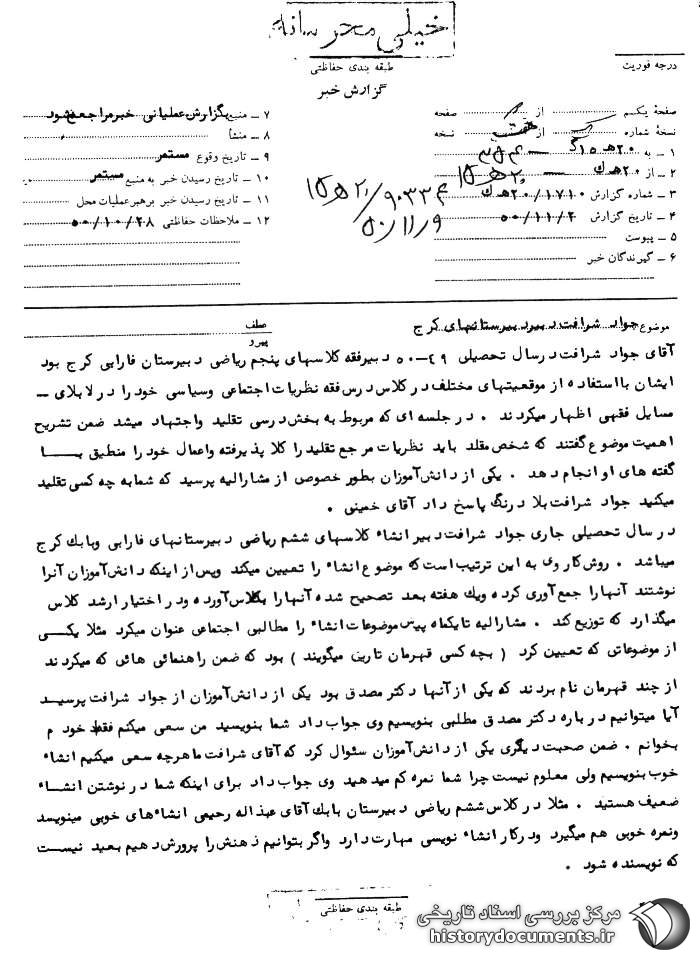 خیلی محرمانه
طبقه بندی حفاظتی
گزارش خبر
درجه فوریت
صفحهٔ یکم از صفحه
نسخهٔ شماره از نسخه
۱ ـ به ۲۰هـ
۲ ـ از ۲۰هـ ک
۳ ـ شماره گزارش ۱۷۱۰/۲۰هـ ک
۴ ـ تاریخ گزارش ۵۰/۱۱/۲
۵ ـ پیوست
۶ ـ گیرندگان خبر
۷ ـ منبع بگزارش عملیاتی خبر مراجعه شود
۸ ـ منشأ
۹ ـ تاریخ وقوع مستمر
۱۰ ـ تاریخ رسیدن خبر به منبع مستمر
۱۱ ـ تاریخ رسیدن خبر برهبر عملیات محل
۱۲ ـ ملاحظات حفاظتی ۵۰/۱۰/۲۸
۵۰/۱۱/۹
موضوع جواد شرافت دبیر دبیرستانهای کرج
عطف
پیرو
آقای جواد شرافت در سال تحصیلی ۴۹-۵۰ دبیر فقه کلاسهای پنجم ریاضی دبیرستان فارابی کرج بود
ایشان با استفاده از موقعیتهای مختلف در کلاس درس فقه نظریات اجتماعی وسیاسی خود را در لابلای ـ
مسایل فقهی اظهار میکردند . در جلسه ای که مربوط به بخش درسی تقلید واجتهاد میشد ضمن تشریح
اهمیت موضوع گفتند که شخص مقلد باید نظریات مرجع تقلید را کلا پذیرفته واعمال خود را منطبق بـــا
گفته های او انجام دهد . یکی از دانش‌آموزان بطور خصوص از مشارالیه پرسید که شما به چه کسی تقلید
میکنید جواد شرافت بلا درنگ پاسخ داد آقای خمینی .
در سال تحصیلی جاری جواد شرافت دبیر انشاء کلاسهای ششم ریاضی دبیرستانهای فارابی وبابک کرج
میباشد . روش کار وی به این ترتیب است که موضوع انشاء را تعیین میکند وپس از اینکه دانش‌آموزان آنرا
نوشتند آنها را جمع آوری کرده ویک هفته بعد تصحیح شده آنها را بکلاس آورده ودر اختیار ارشد کلاس
میگذارد که توزیع کند . مشارالیه تا یکماه پیش موضوعات انشاء را مطالبی اجتماعی عنوان میکرد مثلا یکـــی
از موضوعاتی که تعیین کرد ( بچه کسی قهرمان تاریخ میگویند ) بود که ضمن راهنمائی هائی که میکردند
از چند قهرمان نام بردند که یکی از آنها دکتر مصدق بود یکی از دانش‌آموزان از جواد شرافت پرسیـــد
آیا میتوانیم درباره دکتر مصدق مطلبی بنویسیم وی جواب داد شما بنویسید من سعی میکنم فقط خودم
بخوانم . ضمن صحبت دیگری یکی از دانش‌آموزان سئوال کرد که آقای شرافت ما هرچه سعی میکنیم انشاء
خوب بنویسیم ولی معلوم نیست چرا شما نمره کم میدهید وی جواب داد برای اینکه شما در نوشتن انشـــاء
ضعیف هستید . مثلا در کلاس ششم ریاضی دبیرستان بابک آقای عبداله رحیمی انشاء‌های خوبی مینویسد
ونمره خوبی هم میگیرد ودرکار انشاء نویسی مهارت دارد واگر بتوانیم ذهنش را پرورش دهیم بعید نیســـت
که نویسنده شود .
طبقه بندی حفاظتی
مرکز بررسی اسناد تاریخی
historydocuments.ir